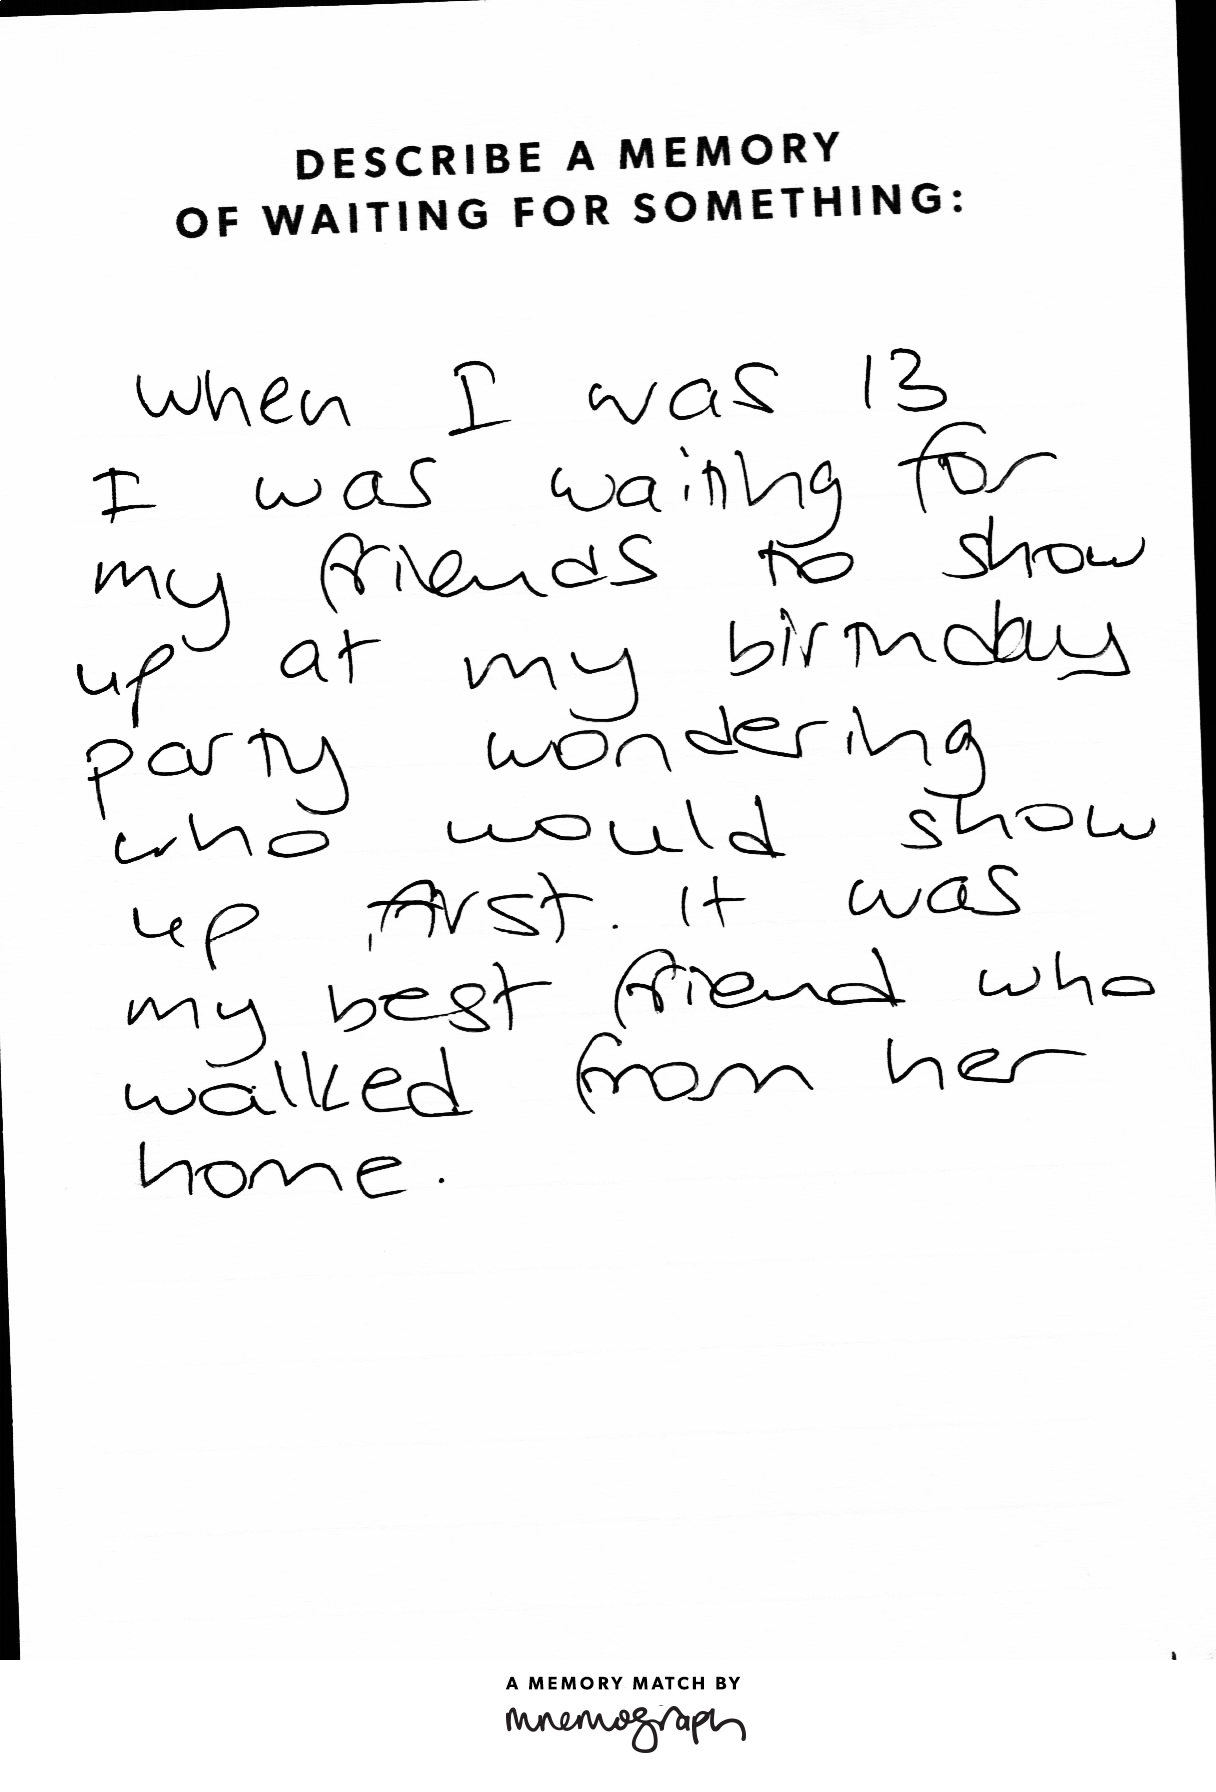 DESCRIBE A MEMORY
OF WAITING FOR SOMETHING:
when I was 13
I was waiting for
my friends to show
up at my birthday
party wondering
who would show
up first. It was
my best friend who
walked from her
home.
A MEMORY MATCH BY
mnemograph